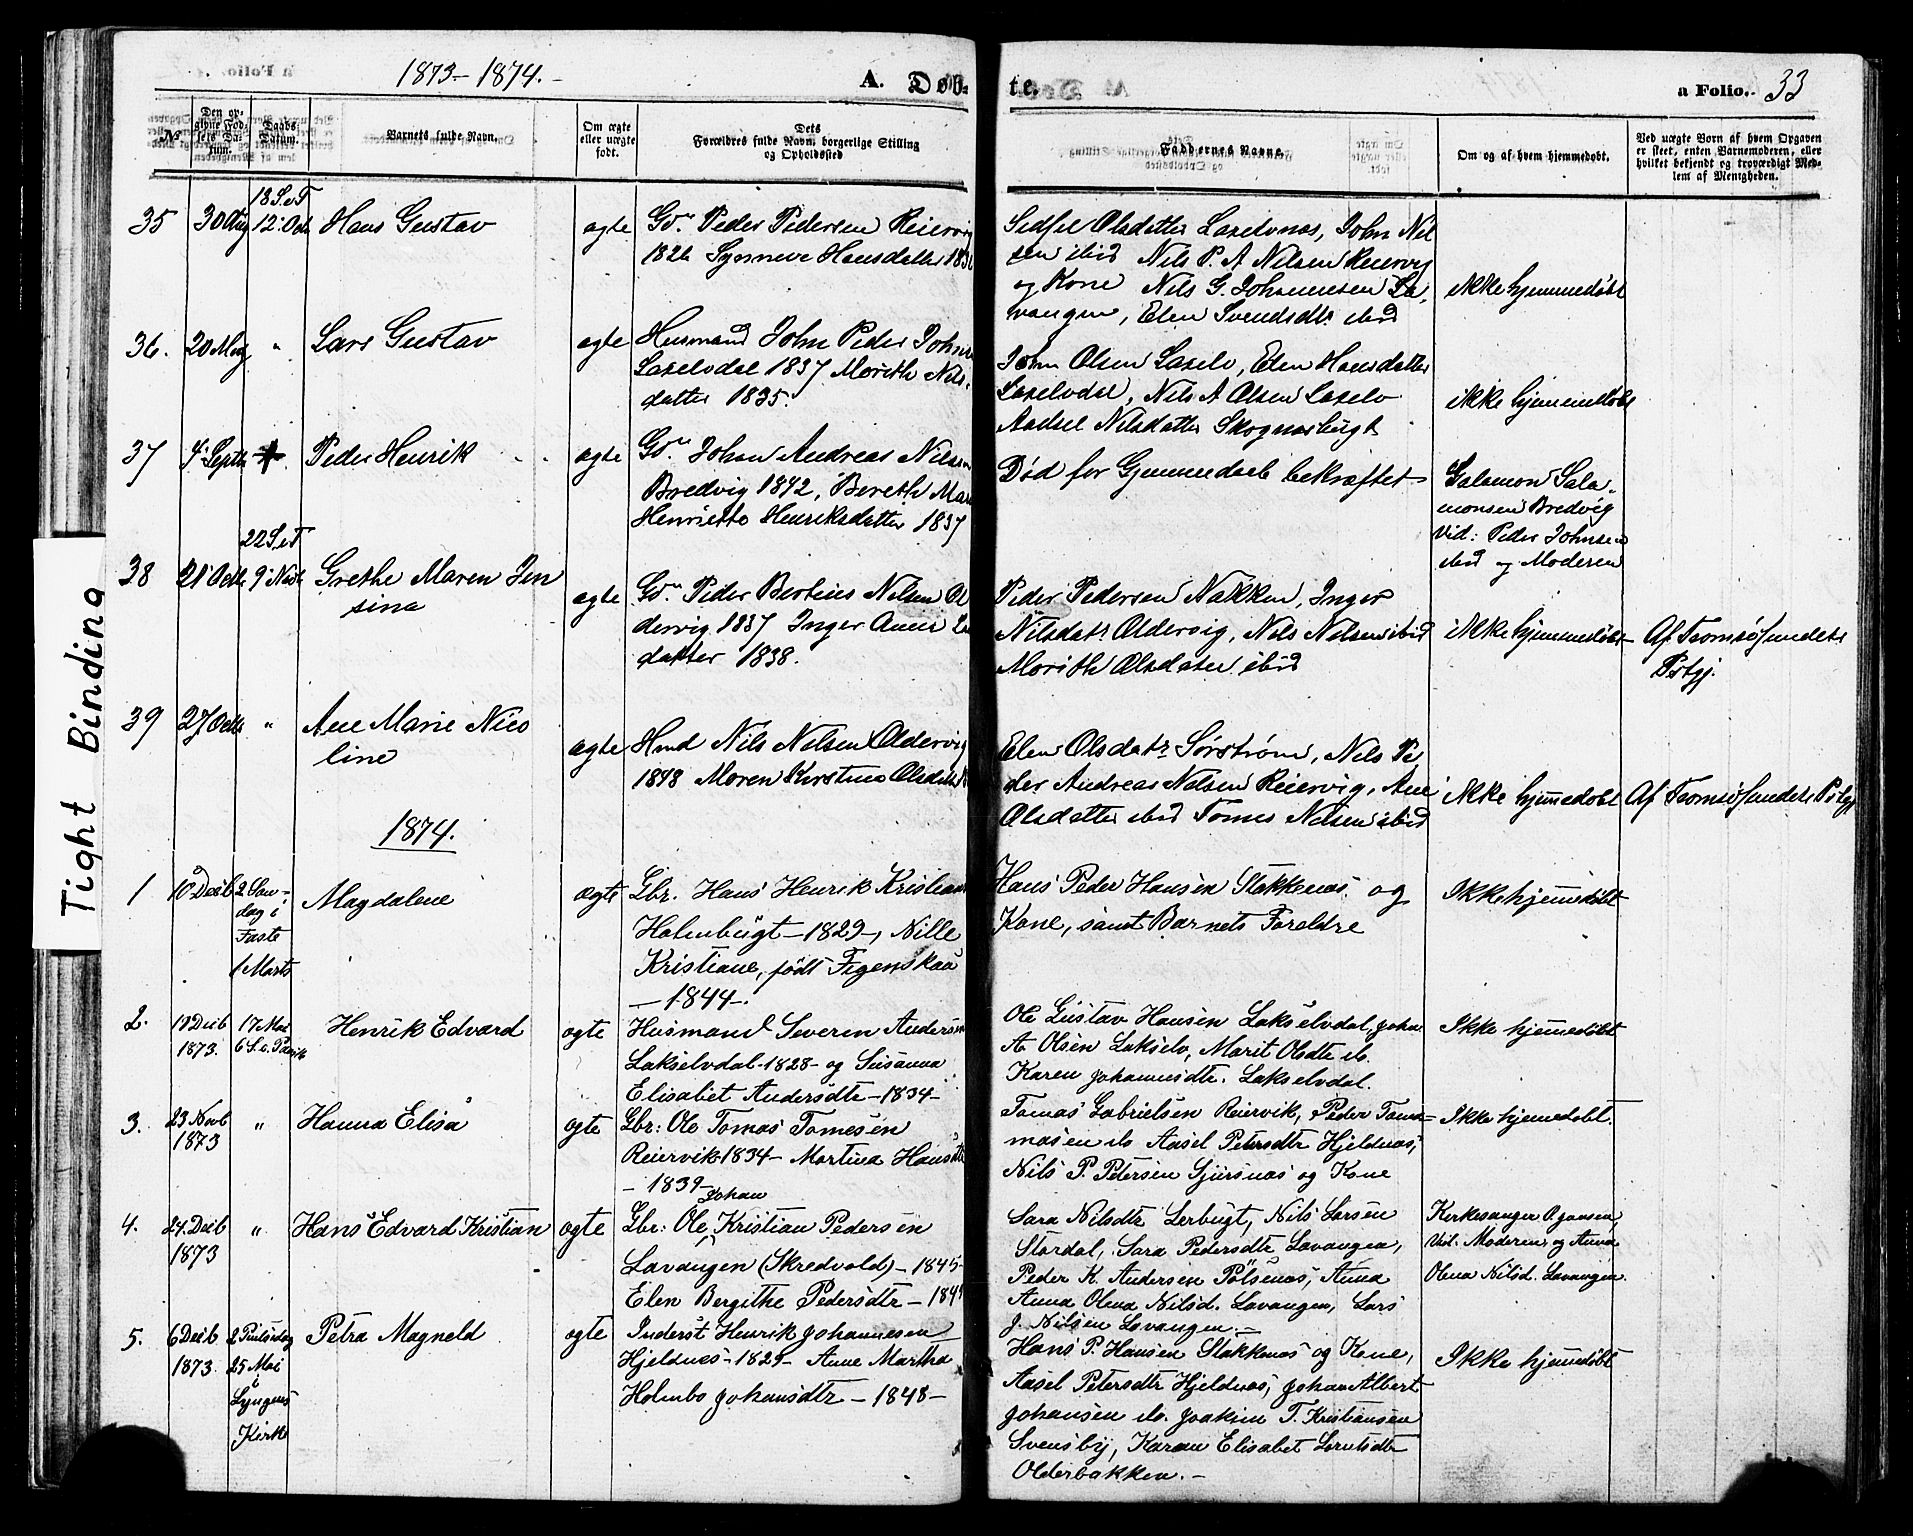 1873–1874.
A. Døb-
te.
a Folio.. 33
Tight Binding
№
Den op-
givne Fød-
sels Da-
tum.
Daabs
Datum.
Barnets fulde Navn.
Om ægte
eller uægte
født.
Dets
Forældres fulde Navn, borgerlige Stilling
og Opholdssted
Faddernes Navne.
Om og af hvem hjemmedøbt.
Ved uægte Børn af hvem Opgaven
er skeet, enten Barnemoderen, eller
hvilket bekjendt og troværdigt Med-
lem af Menigheden.
35
30 Aug
18 S.e.T
12' Oct
Hans Gustav
ægte
Gd. Peder Pedersen Reiervig
1826 Synneve Hansdatter
Sidsel Olsdatter Laxelvnæs, John Niel
sen ibid Nils P. A Nilsen Reiervig
og Kone Nils G. Johannesen La
vangen, Elen Svendsdtr ibid
ikke hjemmedøbt
36.
20 Aug
"
Lars Gustav
ægte
Husmand John Peder Johns
Laxelvdal 1837 Morith Nils-
datter 1835.
John Olsen Laxelv, Elen Hansdatter
Laxelvdal, Nils A Olsen Laxelv
Aadsel Nilsdatter Skognæsbugt
ikke hjemmedøbt
37
4' Septbr
Peder Henrik
ægte
Gd. Johan Andreas Nilsen
Bredvig 1842, Bereth Mar
Henriette Henriksdatter 1837
Død før Hjemmedaab bekræftet
Salamon Sala-
monsen Bredvig
Vid: Peder Johnsen
ibid og Moderen
38
21' Octb
22 S.e.T
9' Novb
Grethe Maren Jen
sina
ægte
Gd. Peder Bertius Nilsen Ol
dervig 1837 Inger Anne La
datter 1838.
Peder Pedersen Nakken, Inger
Nilsdatr Oldervig, Nils Nilsen ibid
Morith Olsdatter ibid
ikke hjemmedøbt
Af Tromsøsundets
Pstgj.
39
27 Octb
"
Ane Marie Nico
line
ægte
Hmd Nils Nilsen Oldervig
1848 Maren Kirstine Olsdatter
Elen Olsdatr Sørstrøm, Nils Pe
der Andreas Nilsen Reiervig, Ane
Olsdatter ibid Tomes Nilsen ibid
ikke hjemmedøbt
Af Tromsøsundets Pstgj
1874.
1
10 Decb
2 Søn-
dag i
Faste
1 Marts
Magdalene
ægte
Gbr. Hans Henrik Kristians
Holmbugt – 1829 –, Nille
Kristiane, født Figenskau
– 1844 –.
Hans Peder Hansen Stakkenæs og
Kone, samt Barnets Forældre
Ikke hjemmedøbt
2.
10 Decb
1873.
17 Mai
6 S.e. Paaske
Henrik Edvard
ægte
Husmand Severin Anders
Lakselvdal – 1828 – og Susanna
Elisabet Andersdtr – 1834 –
Ole Gustav Hansen Lakselvdal, Johan
A. Olsen Lakselv, Marit Olsdtr ib.
Karen Johannesdtr. Lakselvdal.
Ikke hjemmedøbt
3.
23 Novb
1873
"
Hanna Elisa
ægte
Gbr: Ole Tomas Tomesen
Reiervik 1834 – Martina Hansdtr
– 1839 –
Tomas Gabrielsen Reiervik, Peder Tom-
masen ib Aasel Petersdtr Hjeldnæs,
Nils P. Petersen Sjursnæs og Kone
Ikke hjemmedøbt.
4.
24. Decb
1873
"
Hans Edvard Kristian
ægte
Johan
Gbr: Ole Kristian Pedersen
Lavangen (Skredvold) – 1845 –
Elen Bergithe Pedersdtr –
Sara Nilsdtr Lerbugt, Nils Larsen
Stordal, Sara Pedersdtr Lavangen,
Peder K. Andersen Pølsenæs, Anna
Anna Olena Nilsd. Lavangen, Lars
J. Nilsen Lavangen. –
Kirkesanger O. Jansen,
Vid. Moderen og Anna
Olena Nilsd. Lavangen
5.
6 Decb
1873
2 Pintsedag
25 Mai
i
Lyngens
Kirke
Petra Magneld
ægte
Inderst Henrik Johannesen
Hjeldnes – 1829 – Anne Martha
Holmbo Johansdtr – 1848 –
Hans P. Hansen Stakkenæs og Kone,
Aasel Petersdtr Hjeldnæs, Johan Albert
Johansen ib. Joakim T. Kristiansen
Svensby, Karen Elisabet Lorntsdtr
Olderbakken. –
Ikke hjemmedøbt